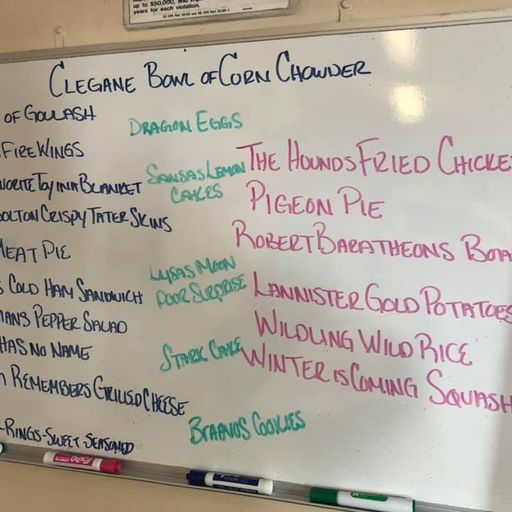 up to $50,000, and
years for each violation.
CLEGANE BOWL OF CORN CHOWDER
OF GOULASH
FIRE WINGS
VORITE TOY IN A BLANKET
BOLTON CRISPY TATER SKINS
MEAT PIE
S COLD HAM SANDWICH
MANS PEPPER SALAD
HAS NO NAME
REMEMBERS GRILLSD CHEESE
-RINGS-SWEET-SEASONED
DRAGON EGGS
SANSAS LEMON
CAKES
LYSAS MOON
DOOR SURPRISE
STARK CAKE
BRAAVOS COOKIES
THE HOUNDS FRIED CHICKE
PIGEON PIE
ROBERT BARATHEONS BOA
LANNISTER GOLD POTATOES
WILDLING WILD RICE
WINTER IS COMING SQUASH
EXPO